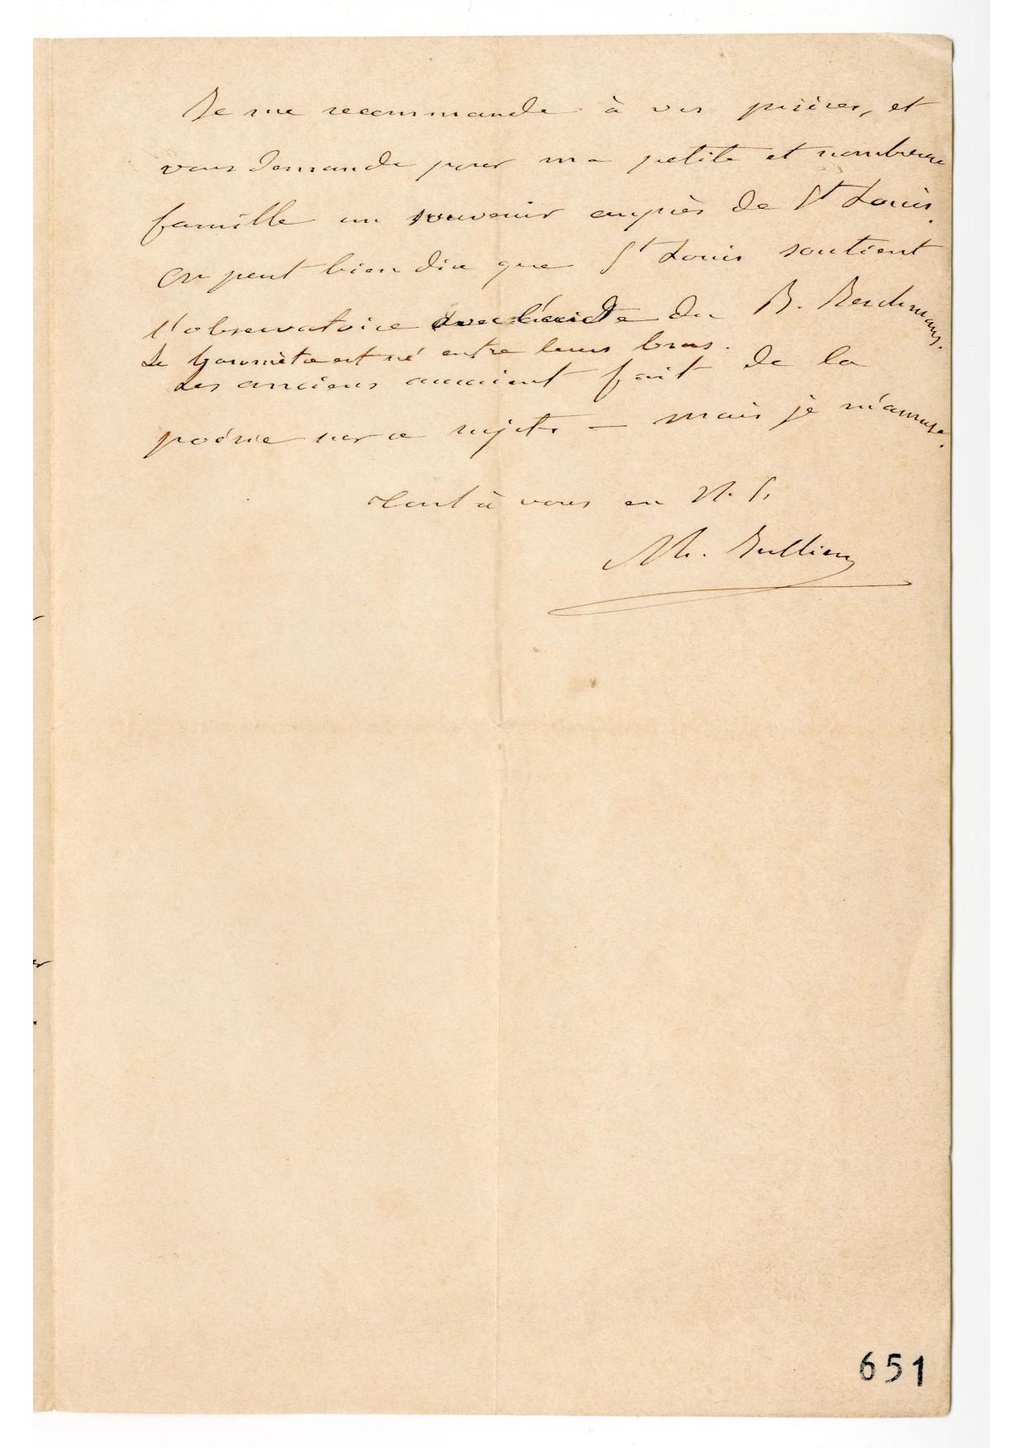 Je me recommande à vos prières, et
vous demande pour ma petite et nombreuse
famille un souvenir auprès de St Louis.
On peut bien dire que St Louis soutient
l'observatoire avec l'aide du B. Berchmans.
Le baromètre est né entre leurs bras.
Les anciens auraient fait de la
poésie sur ce sujet — mais je m'amuse.
Tout à vous en N. S.
M. Jullien
651